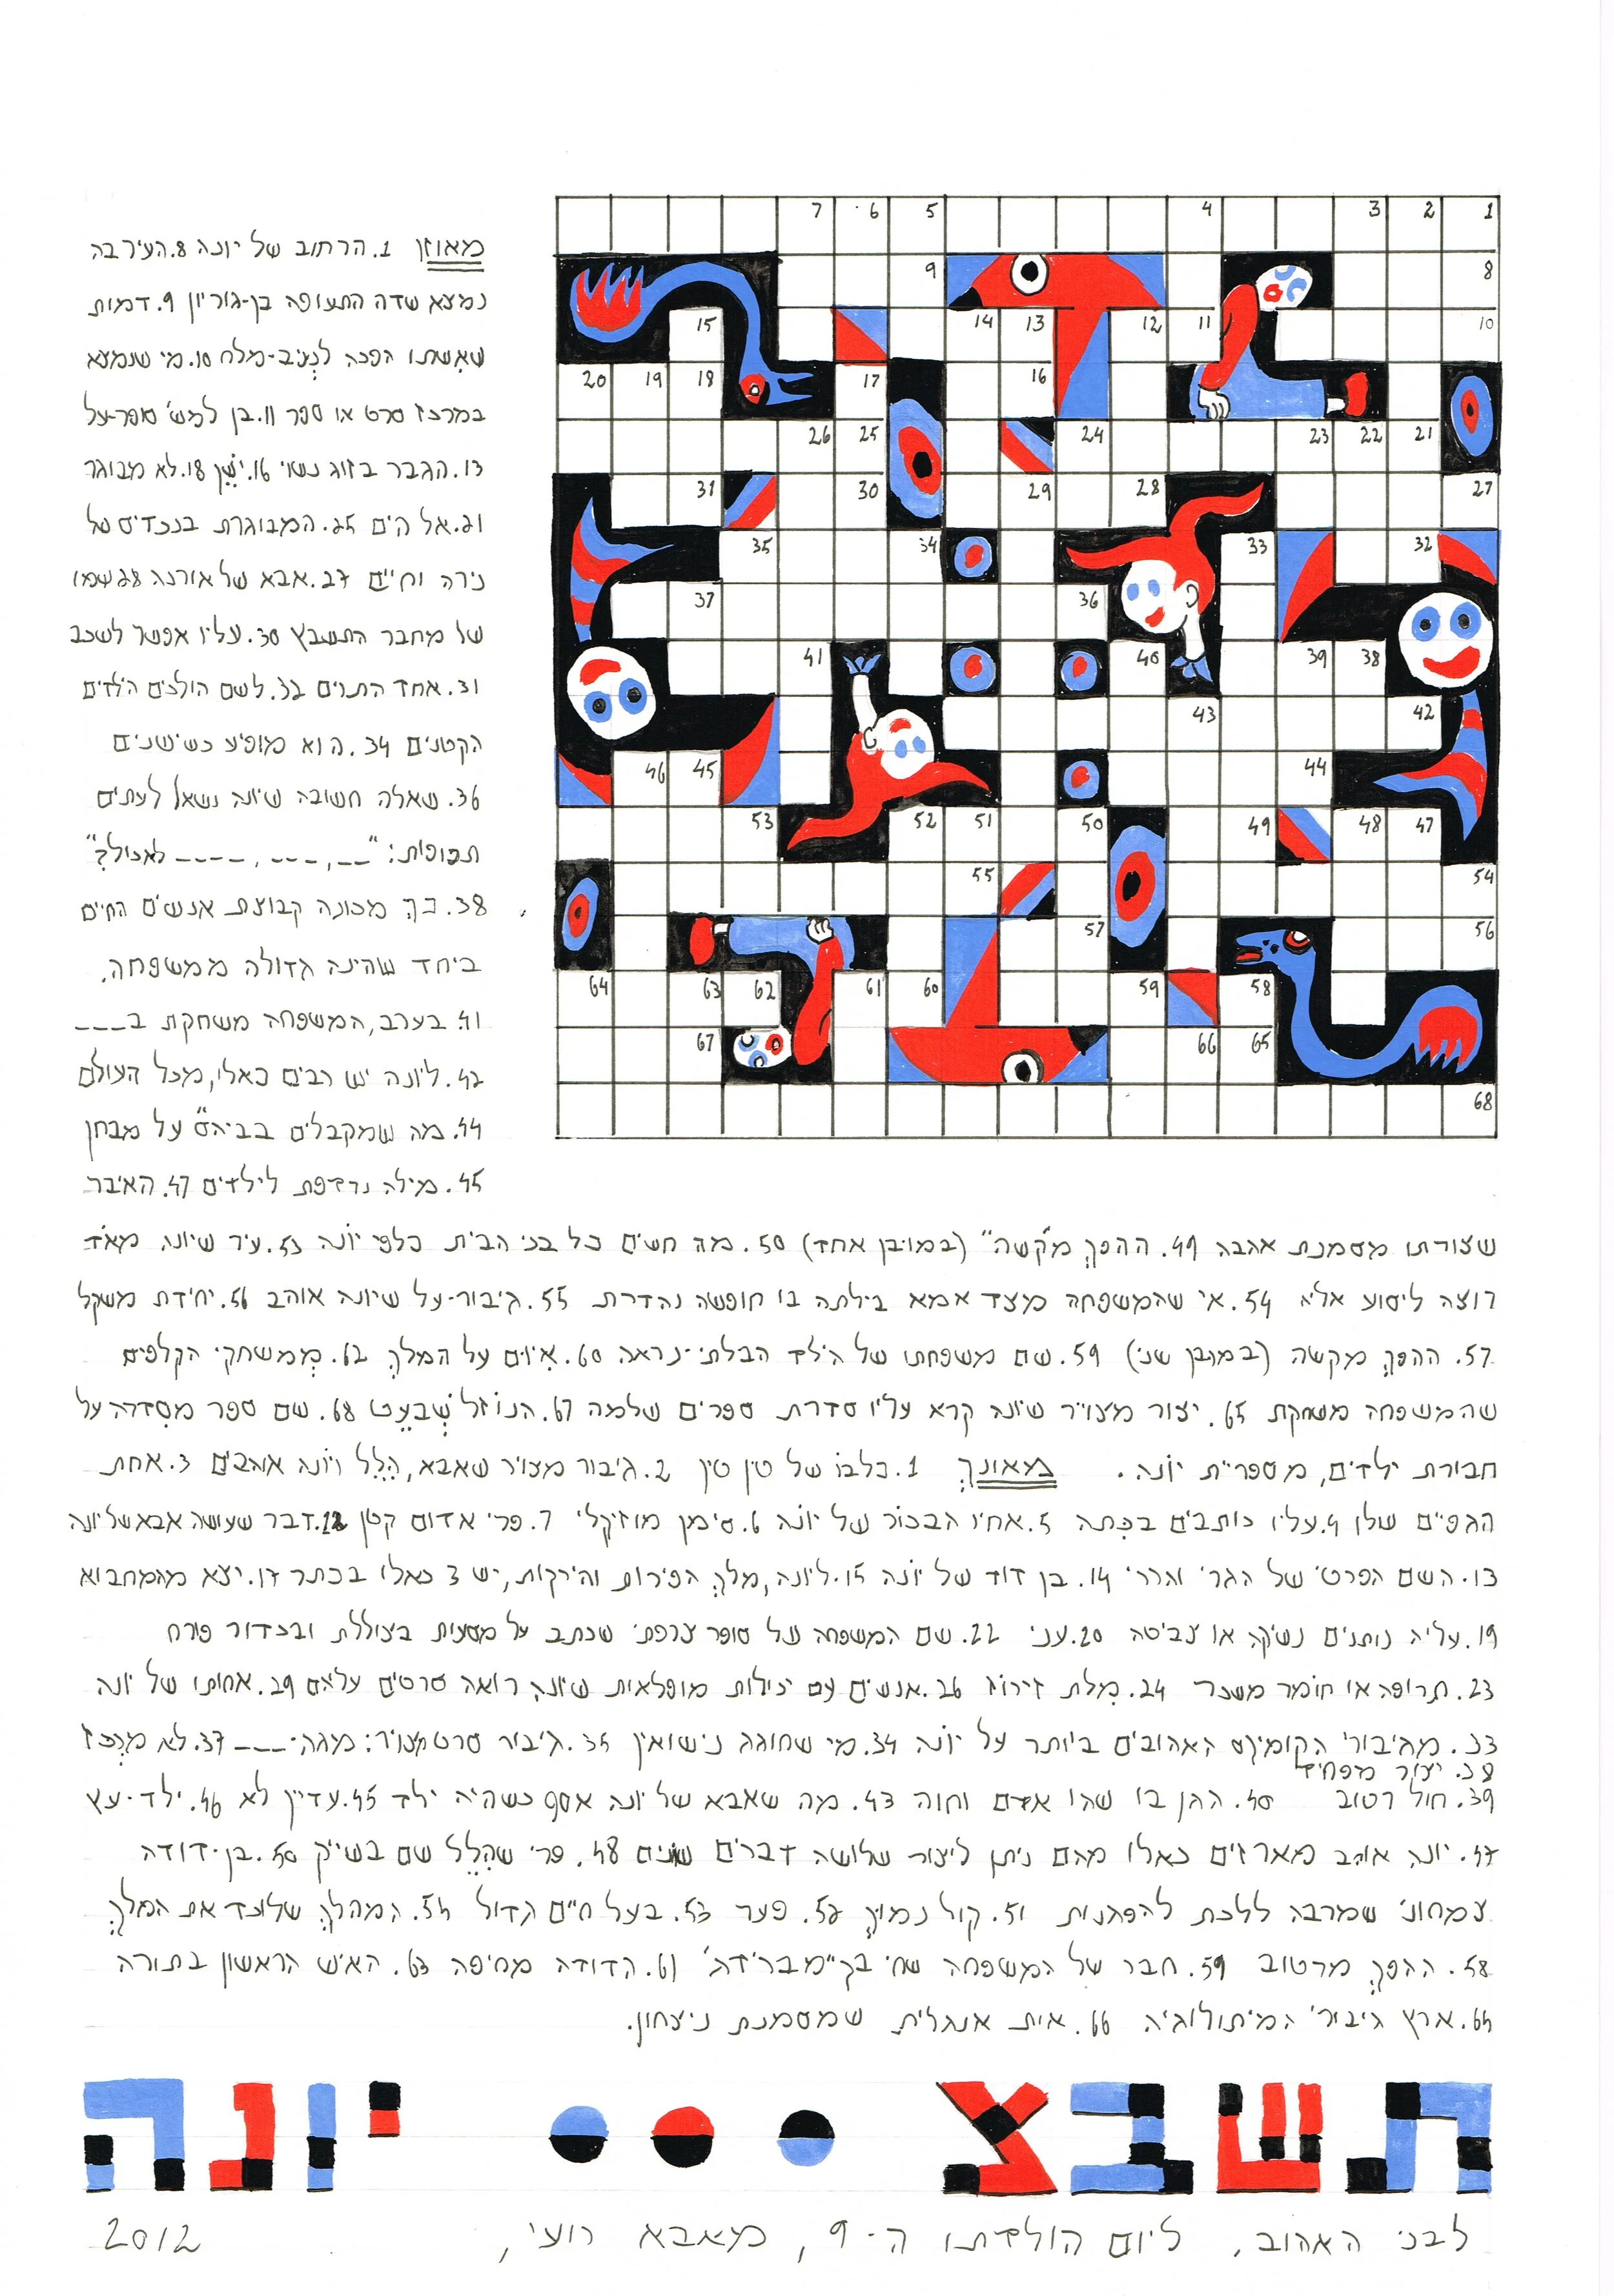 7 6 5 4 3 2 1
9 8
15 14 13 12 11 10
20 19 18 17 16
26 25 24 23 22 21
31 30 29 28 27
35 34 33 32
37 36
41 40 39 38
43 42
46 45 44
53 52 51 50 49 48 47
55 54
57 56
64 63 62 61 60 59 58
67 66 65
68
מאוזן 1. הרחוב של יונה 8. העיר בה
נמצא שדה התעופה בן-גוריון 9. דמות
שאשתו הפכה לנציב-מלח 10. מי שנמצא
במרכז סרט או ספר 11. בן למש' סופר-על
13. הגבר בזוג נשוי 16. יָשֵׁן 18. לא מבוגר
21. אל הים 25. המבוגרת בנכדים של
נירה וחיים 27. אבא של אורנה 28. שמו
של מחבר התשבץ 30. עליו אפשר לשכב
31. אחד התרים 32. לשם הולכים הילדים
הקטנים 34. הוא מופיע כשישנים
36. שאלה חשובה שיונה נשאל לעתים
תכופות: "__, ___, ____ לאכול?"
38. כך מכונה קבוצת אנשים החיים
ביחד שהינה גדולה ממשפחה.
41. בערב, המשפחה משחקת ב___
42. ליונה יש רבים כאלו, מכל העולם
44. מה שמקבלים בביה"ס על מבחן
45. מילה נרדפת לילדים 47. האיבר
שצורתו מסמנת אהבה 49. ההפך מ"קשה" (במובן אחד) 50. מה חשים כל בני הבית כלפי יונה 53. עיר שיונה מאוד
רוצה ליסוע אליה 54. אי שהמשפחה מצד אמא בילתה בו חופשה נהדרת 55. גיבור-על שיונה אוהב 56. יחידת משקל
57. ההפך מקשה (במובן שני) 59. שם משפחתו של הילד הבלתי-נראה 60. איום על המלך 62. ממשחקי הקלפים
שהמשפחה משחקת 65. יצור מצויר שיונה קרא עליו סדרת ספרים שלמה 67. הנוזל שֶׁבעֵט 68. שם ספר מסדרה על
חבורת ילדים, מספריית יונה. מאונך 1. כלבו של טין טין 2. גיבור מצויר שאבא, הלל ויונה אוהבים 3. אחת
הגפיים שלן 4. עליו כותבים בכתה 5. אחיו הבכור של יונה 6. סימן מוזיקלי 7. פרי אדום קטן 12. דבר שעושה אבא של יונה
13. השם הפרטי של הגרי והררי 14. בן דוד של יונה 15. ליונה, מלך הפירות והירקות, יש 3 כאלו בכתר 17. יצא מהמחבוא
19. עליה נותנים נשיקה או צביטה 20. עני 22. שם המשפחה של סופר צרפתי שכתב על מסעות בצוללת ובכדור פורח
23. תרופה או חומר משכר 24. מלת זירוז 26. אנשים עם יכולות מופלאות שיונה רואה סרטים עליהם 29. אחותו של יונה
33. מגיבורי הקומיקס האהובים ביותר על יונה 34. מי שחוגג נישואין 35. גיבור סרט מצויר: מגה-___ 37. לא מרכז
38. יצור מפחיד
39. חול רטוב 40. הגן בו שהו אדם וחוה 43. מה שאבא של יונה אסף כשהיה ילד 45. עדיין לא 46. ילד-עץ
47. יונה אוהב מארזים כאלו מהם ניתן ליצור שלושה דברים שונים 48. פרי שהלל שם בשייק 50. בן-דודה
צמחוני שמרבה ללכת להפגנות 51. קול נמוך 52. פער 53. בעל חיים גדול 54. המהלך שלוכד את המלך
58. ההפך מרטוב 59. חבר של המשפחה שחי בק"מברידג' 61. הדודה מחיפה 63. האיש הראשון בתורה
64. ארץ גיבורי המיתולוגיה 66. אות אנגלית שמסמנת ניצחון.
תשבצ ... יונה
לבני האהוב, ליום הולדתו ה-9, מאבא רועי, 2012